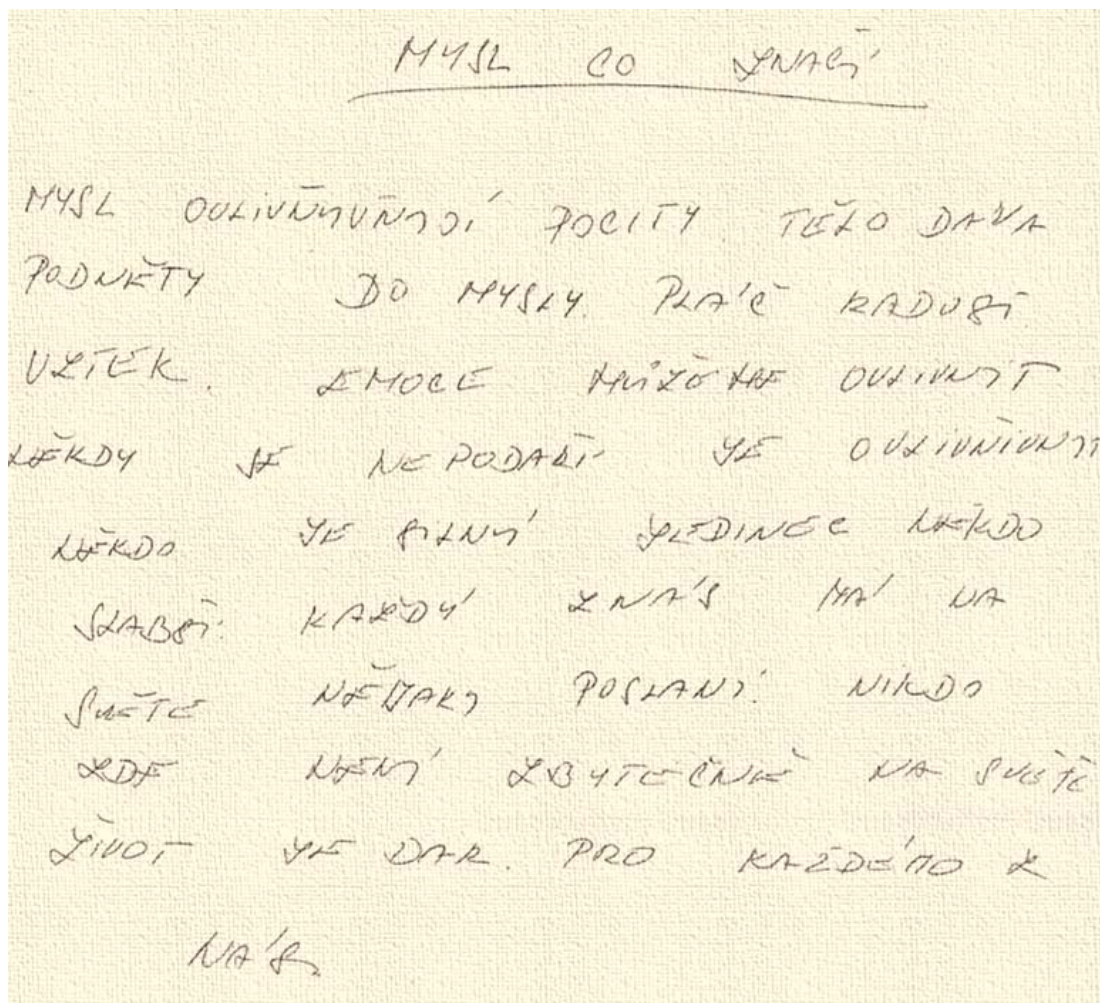 MYSL CO ZNAČÍ
MYSL OVLIVŇUJÍ POCITY TĚLO DÁVÁ
PODNĚTY DO MYSLY. PLÁČ RADOST
VZTEK. EMOCE MŮŽEME OVLIVNIT
NĚKDY SE NEPODAŘÍ JE OVLIVNIVNIT
NĚKDO JE SILNÝ JEDINEC NĚKDO
SLABŠÍ. KAŽDÝ ZNÁS MÁ NA
SVĚTE NĚJAKÝ POSLANÍ. NIKDO
ZDE NENÍ ZBYTEČNĚ NA SVĚTĚ
ŽIVOT JE DAR. PRO KAŽDÉHO Z
NÁS.